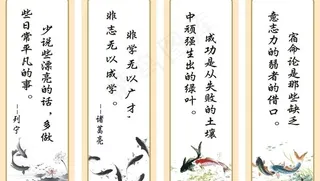 宿命论是那些缺乏
意志力的弱者的借口。
成功是从失败的土壤
中顽强生出的绿叶。
非学无以广才，
非志无以成学。
--诸葛亮
少说些漂亮的话，多做
些日常平凡的事。
--列宁